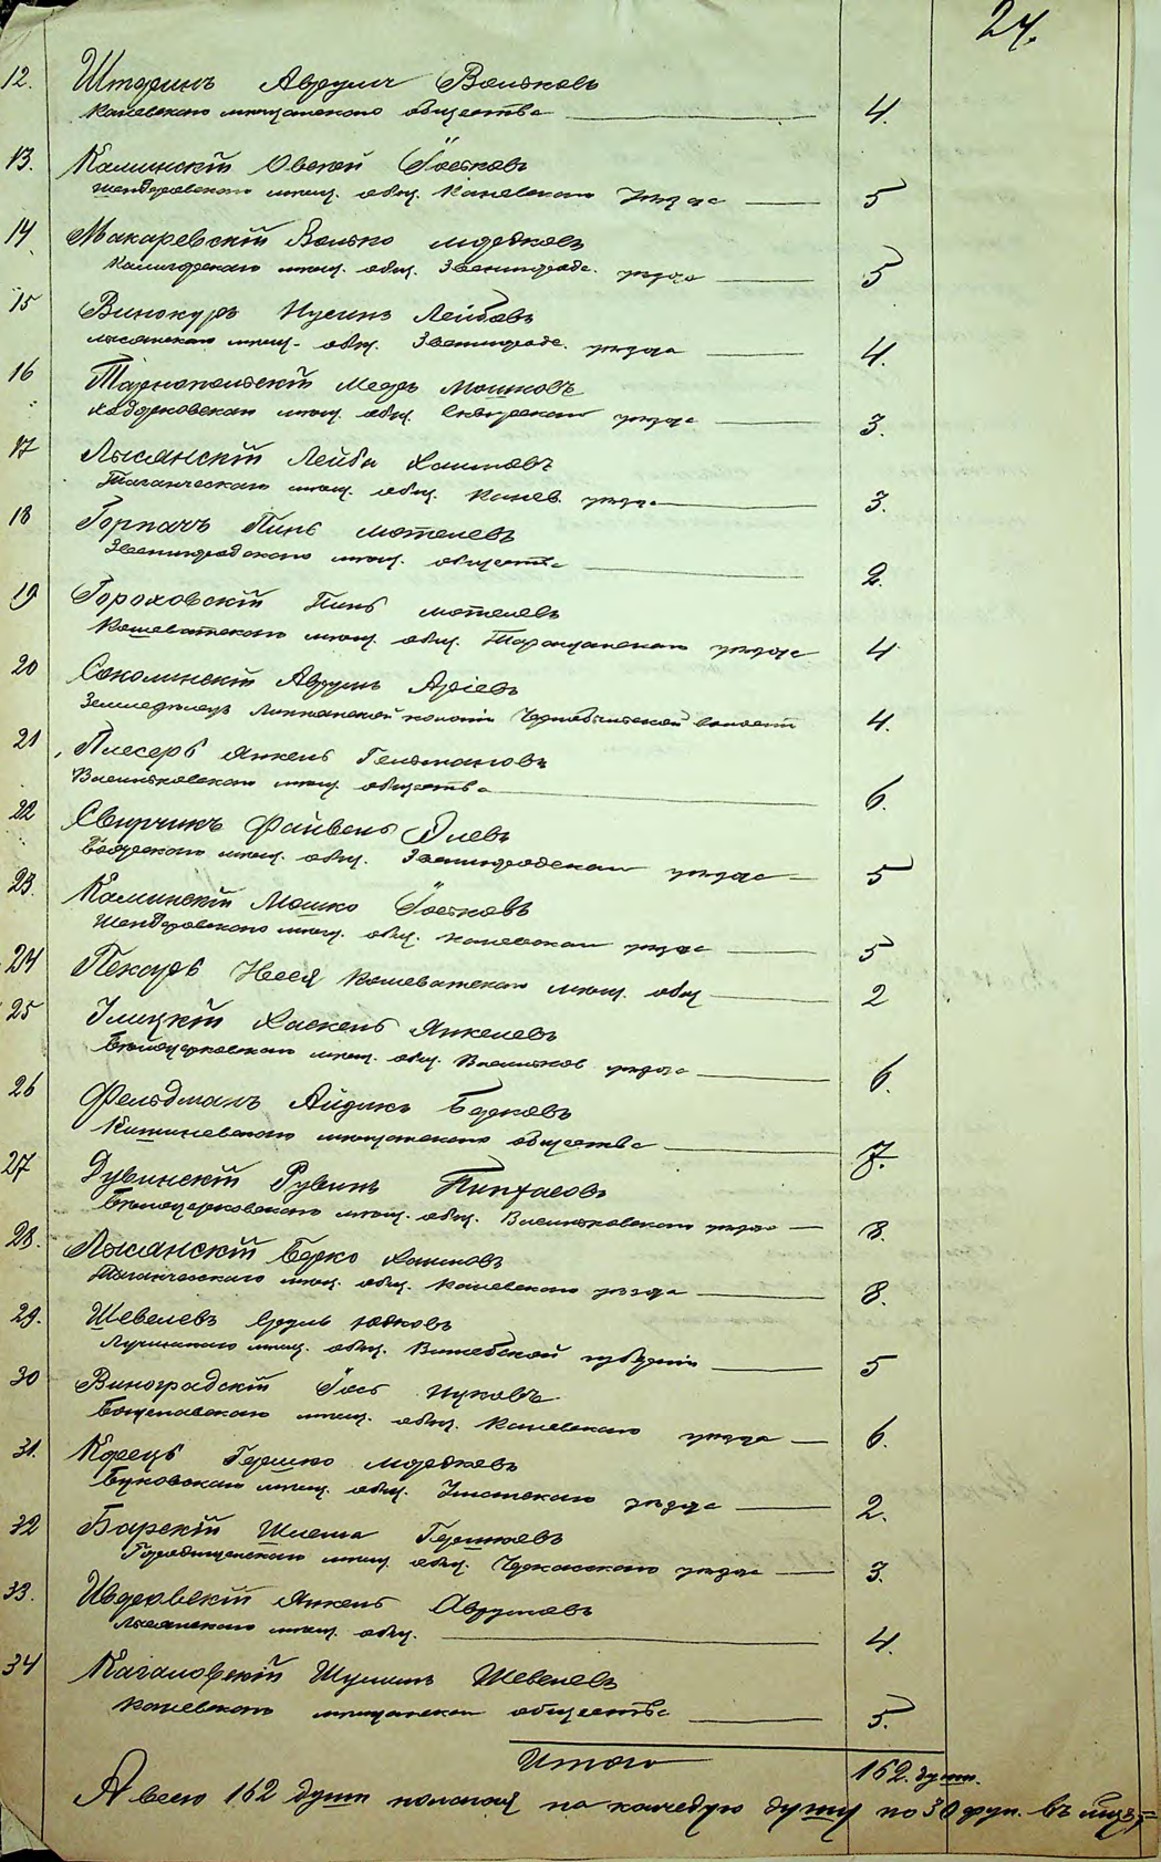 24.
12. Штеринъ Аврумъ Вольковъ
Каневскаго мѣщанскаго общества 4.
13. Каминскій Овсей Іоськовъ
Шендеровскаго мѣщ. общ. Каневскаго уѣзда 5
14 Макаревскій Волько Мордковъ
Калигорскаго мѣщ. общ. Звенигородс. уѣзда 5
15 Винокуръ Нусинъ Лейбовъ
Лысянскаго мѣщ. общ. Звенигородс. уѣзда 4.
16 Тарнопольскій Мееръ Мошковъ
Ходорковскаго мѣщ. общ. Сквирскаго уѣзда 3.
17 Лысянскій Лейба Хаимовъ
Таганческаго мѣщ. общ. Канев. уѣзда 3.
18 Горпачъ Пине Мотелевъ
Звенигородскаго мѣщ. общества 2.
19 Гороховскій Пинь Мотелевъ
Кошеватскаго мѣщ. общ. Таращанскаго уѣзда 4
20 Соколинскій Аврумъ Аріевъ
Земледѣлецъ колоніи волости 4.
21 Плесеръ Янкель Гельмановъ
Васильковскаго мѣщ. общества 6.
22 Свирчикъ Файвель Элевъ
мѣщ. общ. Звенигородскаго уѣзда 5
23. Каминскій Мошко Іоськовъ
Шендеровскаго мѣщ. общ. Каневскаго уѣзда 5
24 Пекаръ Несся Кошеватскаго мѣщ. общ 2
25 Улицкій Хаскель Янкелевъ
Бѣлоцерковскаго мѣщ. общ. Васильков. уѣзда 6.
26 Фельдманъ Айзикъ Берковъ
Кишиневскаго мѣщанскаго общества 7.
27 Дувинскій Рувинъ Пинхасовъ
Бѣлоцерковскаго мѣщ. общ. Васильковскаго уѣзда 8.
28. Лысянскій Берко Хаимовъ
Таганческаго мѣщ. общ. Каневскаго уѣзда 8.
29. Шевелевъ Сруль Юдковъ
мѣщ. общ. Витебской губерніи 5
30 Виноградскій Іось Ицковъ
Богуславскаго мѣщ. общ. Каневскаго уѣзда 6.
31. Корецъ Гершко Мордковъ
Букскаго мѣщ. общ. Уманскаго уѣзда 2.
32 Барскій Шлема Гершковъ
Городищенскаго мѣщ. общ. Черкасскаго уѣзда 3.
33. Янкель Аврумовъ
Лысянскаго мѣщ. общ. 4.
34 Кагановскій Шулимъ Шевелевъ
Каневскаго мѣщанскаго общества 5.
Итого 162. душ.
А всего 162 душъ полагая на каждую душу по 30 фун. въ мѣсяцъ